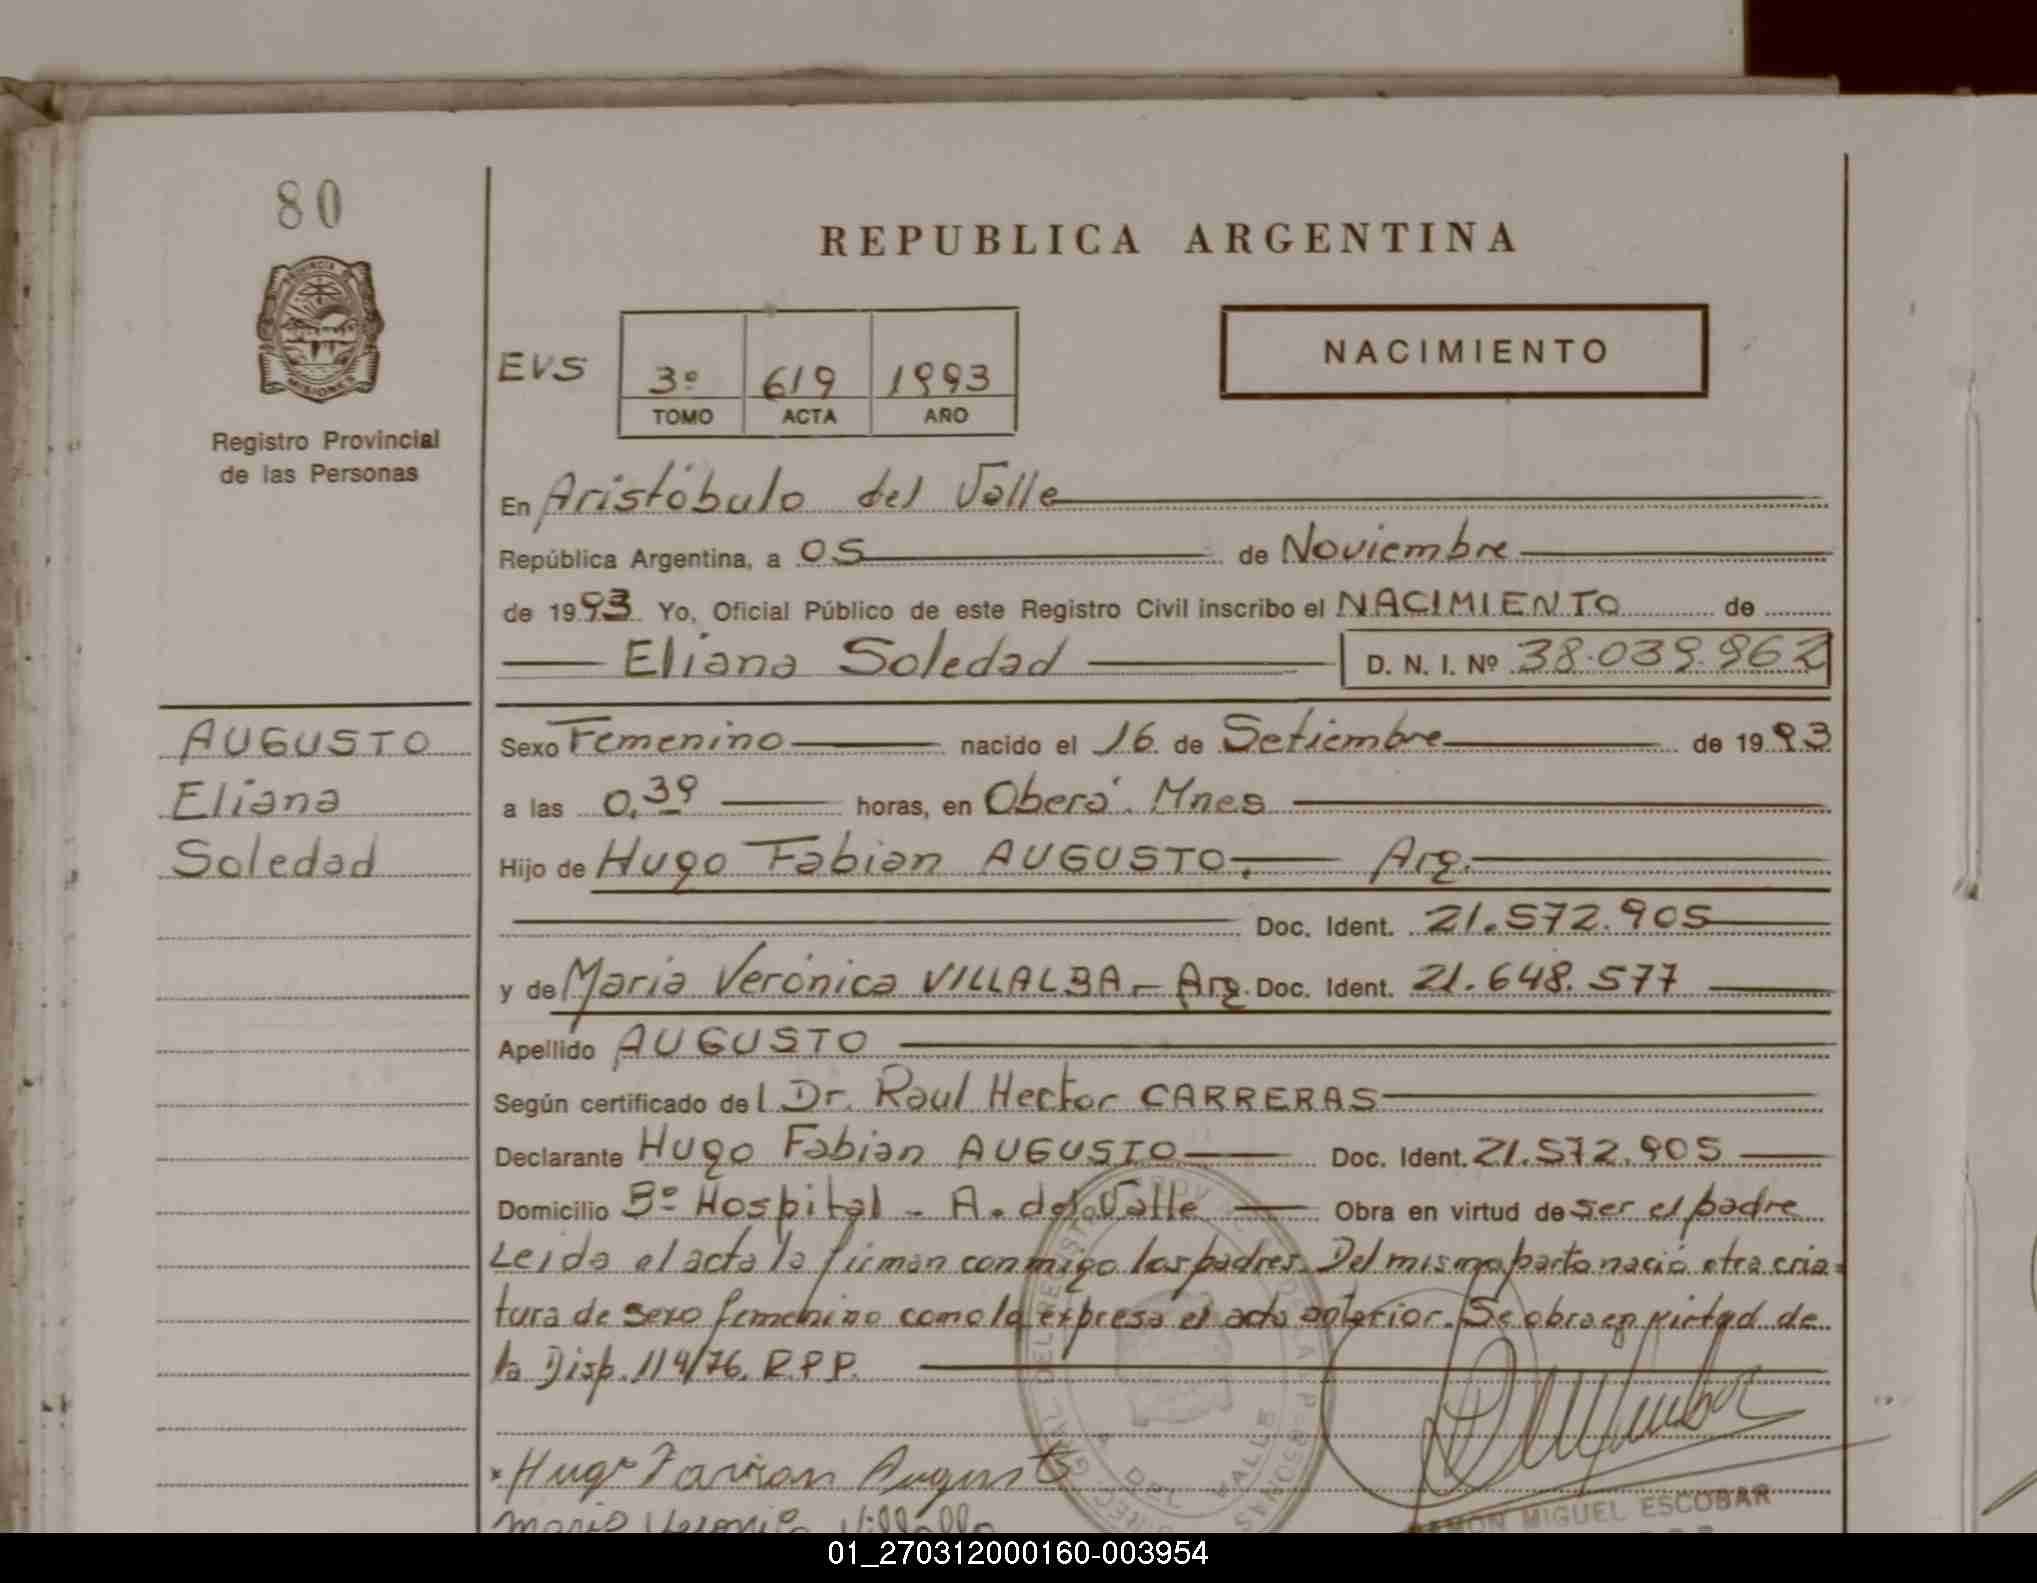 80
PROVINCIA DE
MISIONES
Registro Provincial
de las Personas
REPUBLICA ARGENTINA
EVS
3º 619 1993
TOMO ACTA AÑO
NACIMIENTO
En Aristóbulo del Valle
República Argentina, a 05 de Noviembre
de 1993 Yo, Oficial Público de este Registro Civil inscribo el NACIMIENTO de
Eliana Soledad D. N. I. Nº 38.039.962
AUGUSTO
Eliana
Soledad
Sexo Femenino nacido el 16 de Setiembre de 1993
a las 0,39 horas, en Oberá. Mnes
Hijo de Hugo Fabian AUGUSTO. Arg.
Doc. Ident. 21.572.905
y de Maria Verónica VILLALBA - Arg. Doc. Ident. 21.648.577
Apellido AUGUSTO
Según certificado del Dr. Raul Hector CARRERAS
Declarante Hugo Fabian AUGUSTO Doc. Ident. 21.572.905
Domicilio Bº Hospital - A. del Valle Obra en virtud de ser el padre
Leida el acta la firman conmigo los padres. Del mismo parto nació otra cria-
tura de sexo femenino como lo expresa el acta anterior. Se obra en virtud de
la Disp. 114/76. R.P.P.
Hugo Favian Augusto
Maria Veronica Villalba
A. DEL VALLE
RAMON MIGUEL ESCOBAR
01_270312000160-003954